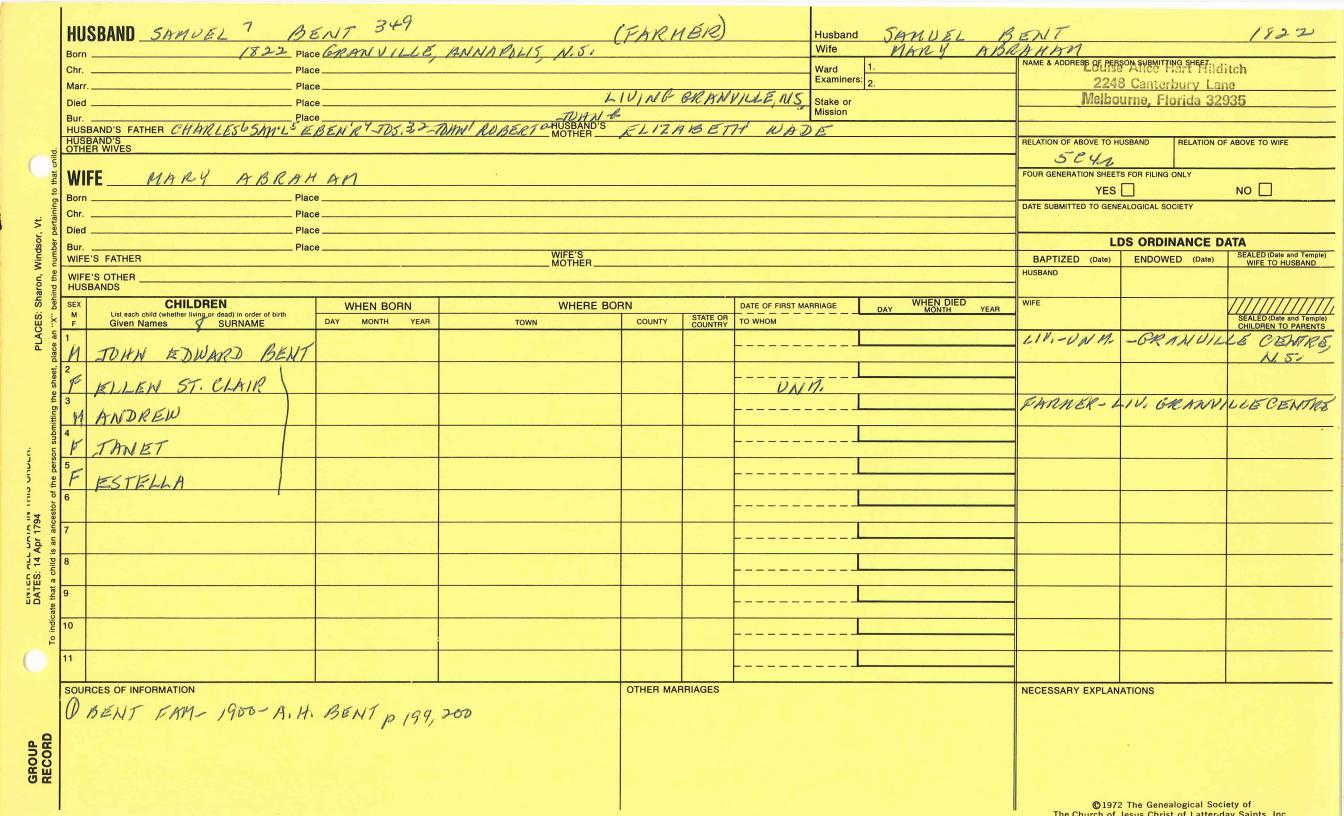 HUSBAND SAMUEL 7 BENT 349 (FARMER)
Born 1822 Place GRANVILLE, ANNAPOLIS, N.S.
Chr. Place
Marr. Place
Died Place LIVING GRANVILLE, NS,
Bur. Place
HUSBAND'S FATHER CHARLES6 SAM'L5 EBEN'R4 JOS.3,2 JOHN1 ROBERT HUSBAND'S MOTHER ELIZABETH WADE
HUSBAND'S OTHER WIVES
Husband SAMUEL BENT 1822
Wife MARY ABRAHAM
Ward Examiners: 1.
2.
Stake or Mission
NAME & ADDRESS OF PERSON SUBMITTING SHEET
Louise Alice Hart Hilditch
2248 Canterbury Lane
Melbourne, Florida 32935
RELATION OF ABOVE TO HUSBAND RELATION OF ABOVE TO WIFE
5C4R
FOUR GENERATION SHEETS FOR FILING ONLY
YES NO
DATE SUBMITTED TO GENEALOGICAL SOCIETY
WIFE MARY ABRAHAM
Born Place
Chr. Place
Died Place
Bur. Place
WIFE'S FATHER WIFE'S MOTHER
WIFE'S OTHER HUSBANDS
LDS ORDINANCE DATA
BAPTIZED (Date) ENDOWED (Date) SEALED (Date and Temple) WIFE TO HUSBAND
HUSBAND
WIFE
SEALED (Date and Temple) CHILDREN TO PARENTS
SEX M F
CHILDREN
List each child (whether living or dead) in order of birth
Given Names 8 SURNAME
WHEN BORN
DAY MONTH YEAR
WHERE BORN
TOWN COUNTY STATE OR COUNTRY
DATE OF FIRST MARRIAGE
TO WHOM
WHEN DIED
DAY MONTH YEAR
1 M JOHN EDWARD BENT LIV.-UNM. -GRANVILLE CENTRE, N.S.
2 F ELLEN ST. CLAIR UNM.
3 M ANDREW FARMER- LIV. GRANVILLE CENTRE
4 F JANET
5 F ESTELLA
6
7
8
9
10
11
SOURCES OF INFORMATION
① BENT FAM- 1900- A.H. BENT p 199, 200
OTHER MARRIAGES
NECESSARY EXPLANATIONS
©1972 The Genealogical Society of
The Church of Jesus Christ of Latter-day Saints, Inc.
PLACES: Sharon, Windsor, Vt.
To indicate that a child is an ancestor of the person submitting the sheet, place an "X" behind the number pertaining to that child.
ENTER ALL DATA IN THIS ORDER:
DATES: 14 Apr 1794
GROUP RECORD